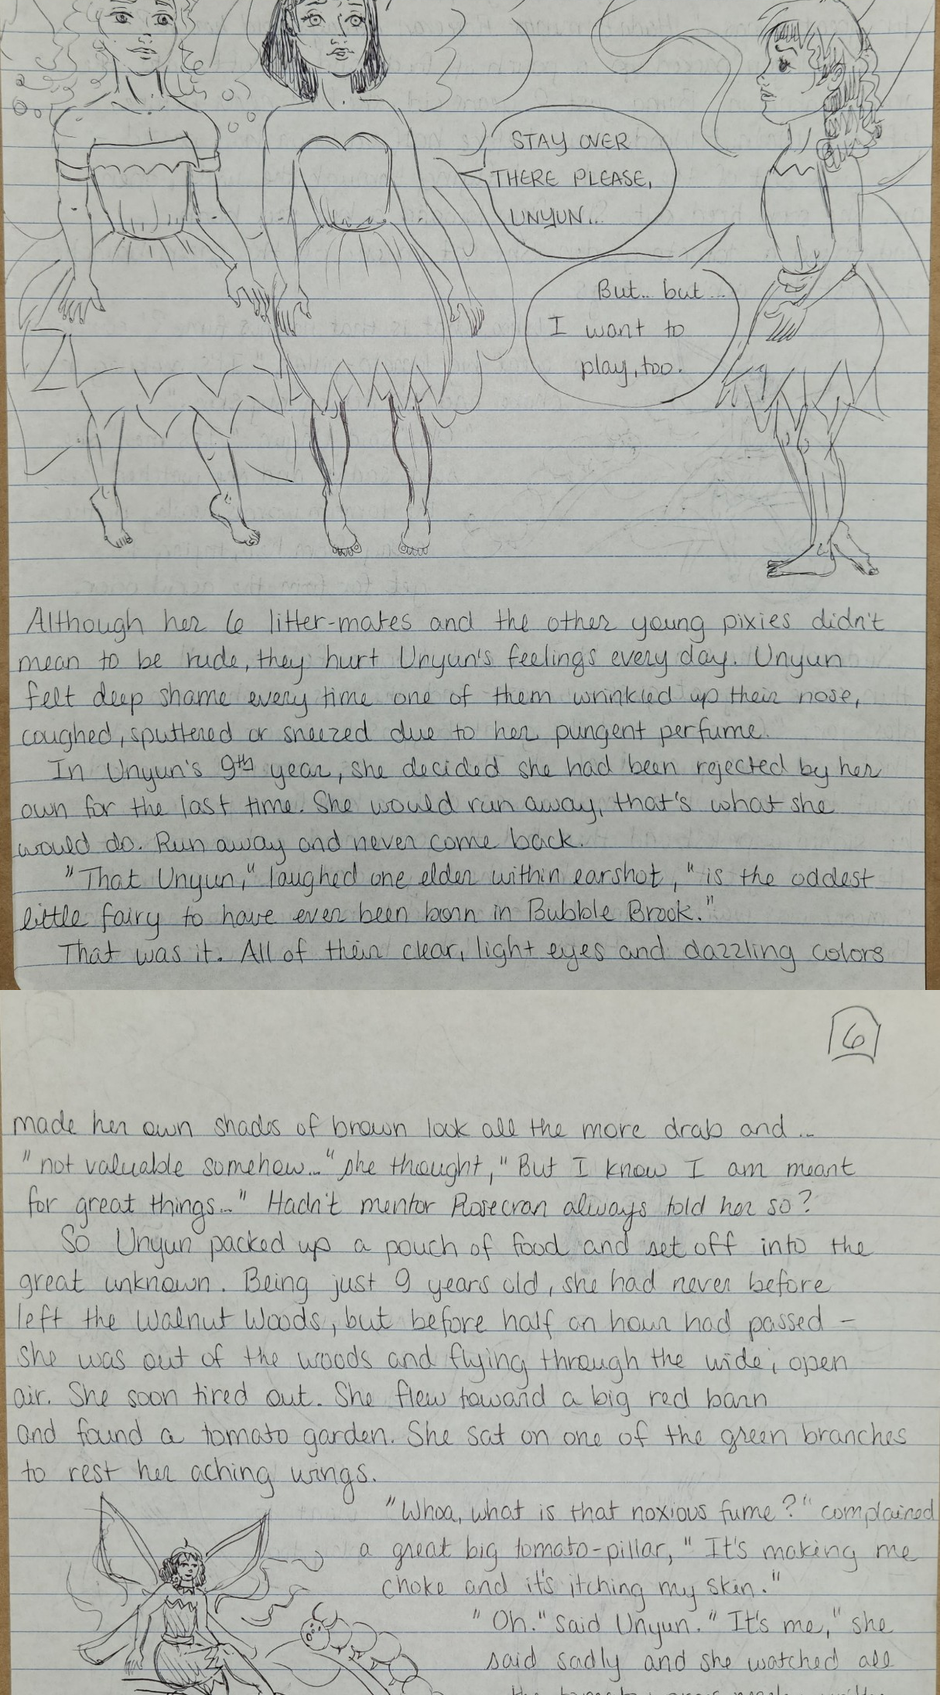 STAY OVER
THERE PLEASE,
UNYUN...
But.. but...
I want to
play, too.
Although her 6 litter-mates and the other young pixies didn't
mean to be rude, they hurt Unyun's feelings every day. Unyun
felt deep shame every time one of them wrinkled up their nose,
coughed, sputtered or sneezed due to her pungent perfume.
In Unyun's 9th year, she decided she had been rejected by her
own for the last time. She would run away, that's what she
would do. Run away and never come back.
"That Unyun," laughed one elder within earshot, "is the oddest
little fairy to have ever been born in Bubble Brook."
That was it. All of their clear, light eyes and dazzling colors
6
made her own shades of brown look all the more drab and...
"not valuable somehow..." she thought, "But I know I am meant
for great things..." Hadn't mentor Rosecran always told her so?
So Unyun packed up a pouch of food and set off into the
great unknown. Being just 9 years old, she had never before
left the Walnut Woods, but before half an hour had passed -
she was out of the woods and flying through the wide, open
air. She soon tired out. She flew toward a big red barn
and found a tomato garden. She sat on one of the green branches
to rest her aching wings.
"Whoa, what is that noxious fume?" complained
a great big tomato-pillar, "It's making me
choke and it's itching my skin."
"Oh." said Unyun. "It's me," she
said sadly and she watched all